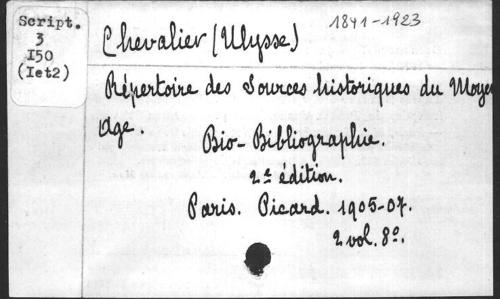 Script.
3
I50
(Iet2)
Chevalier (Ulysse)
1841-1923
Répertoire des Sources historiques du Moyen
Age.
Bio-Bibliographie.
2e édition.
Paris. Picard. 1905-07.
2 vol. 8o.